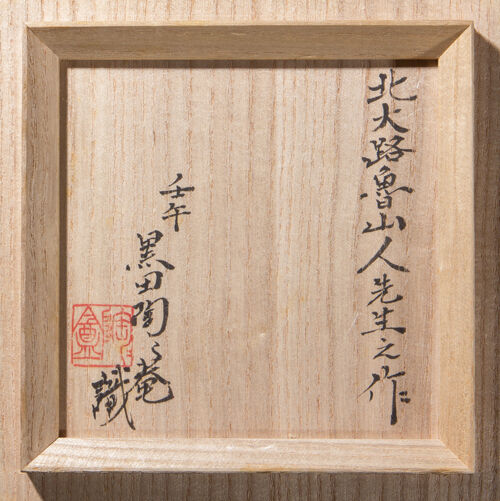 北大路魯山人先生之作
壬午
黒田陶々菴
識
陶々菴